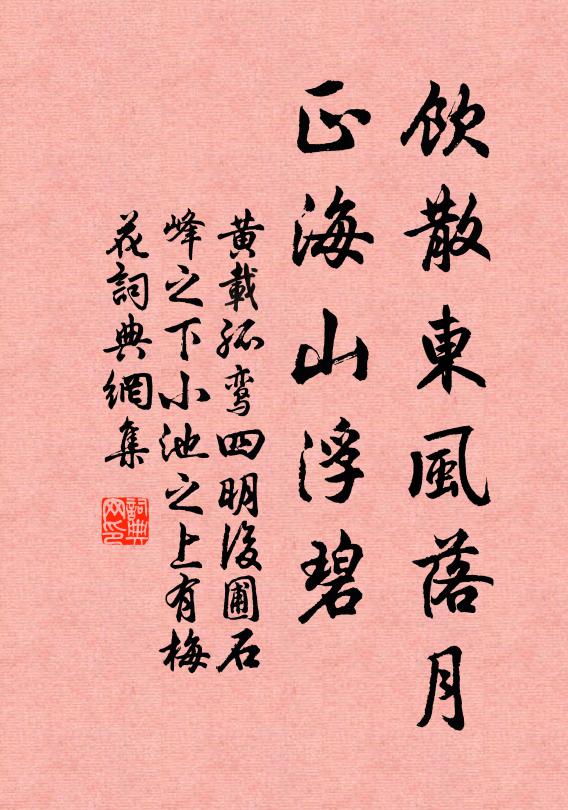 飲散東風落月
正海山浮碧
黃載孤鸾四明後圃石
峰之下小池之上有梅
花詞典網集
詞典
网印